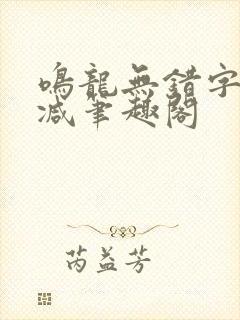 鳴龍無錯字
减筆趣閣
芮益芳